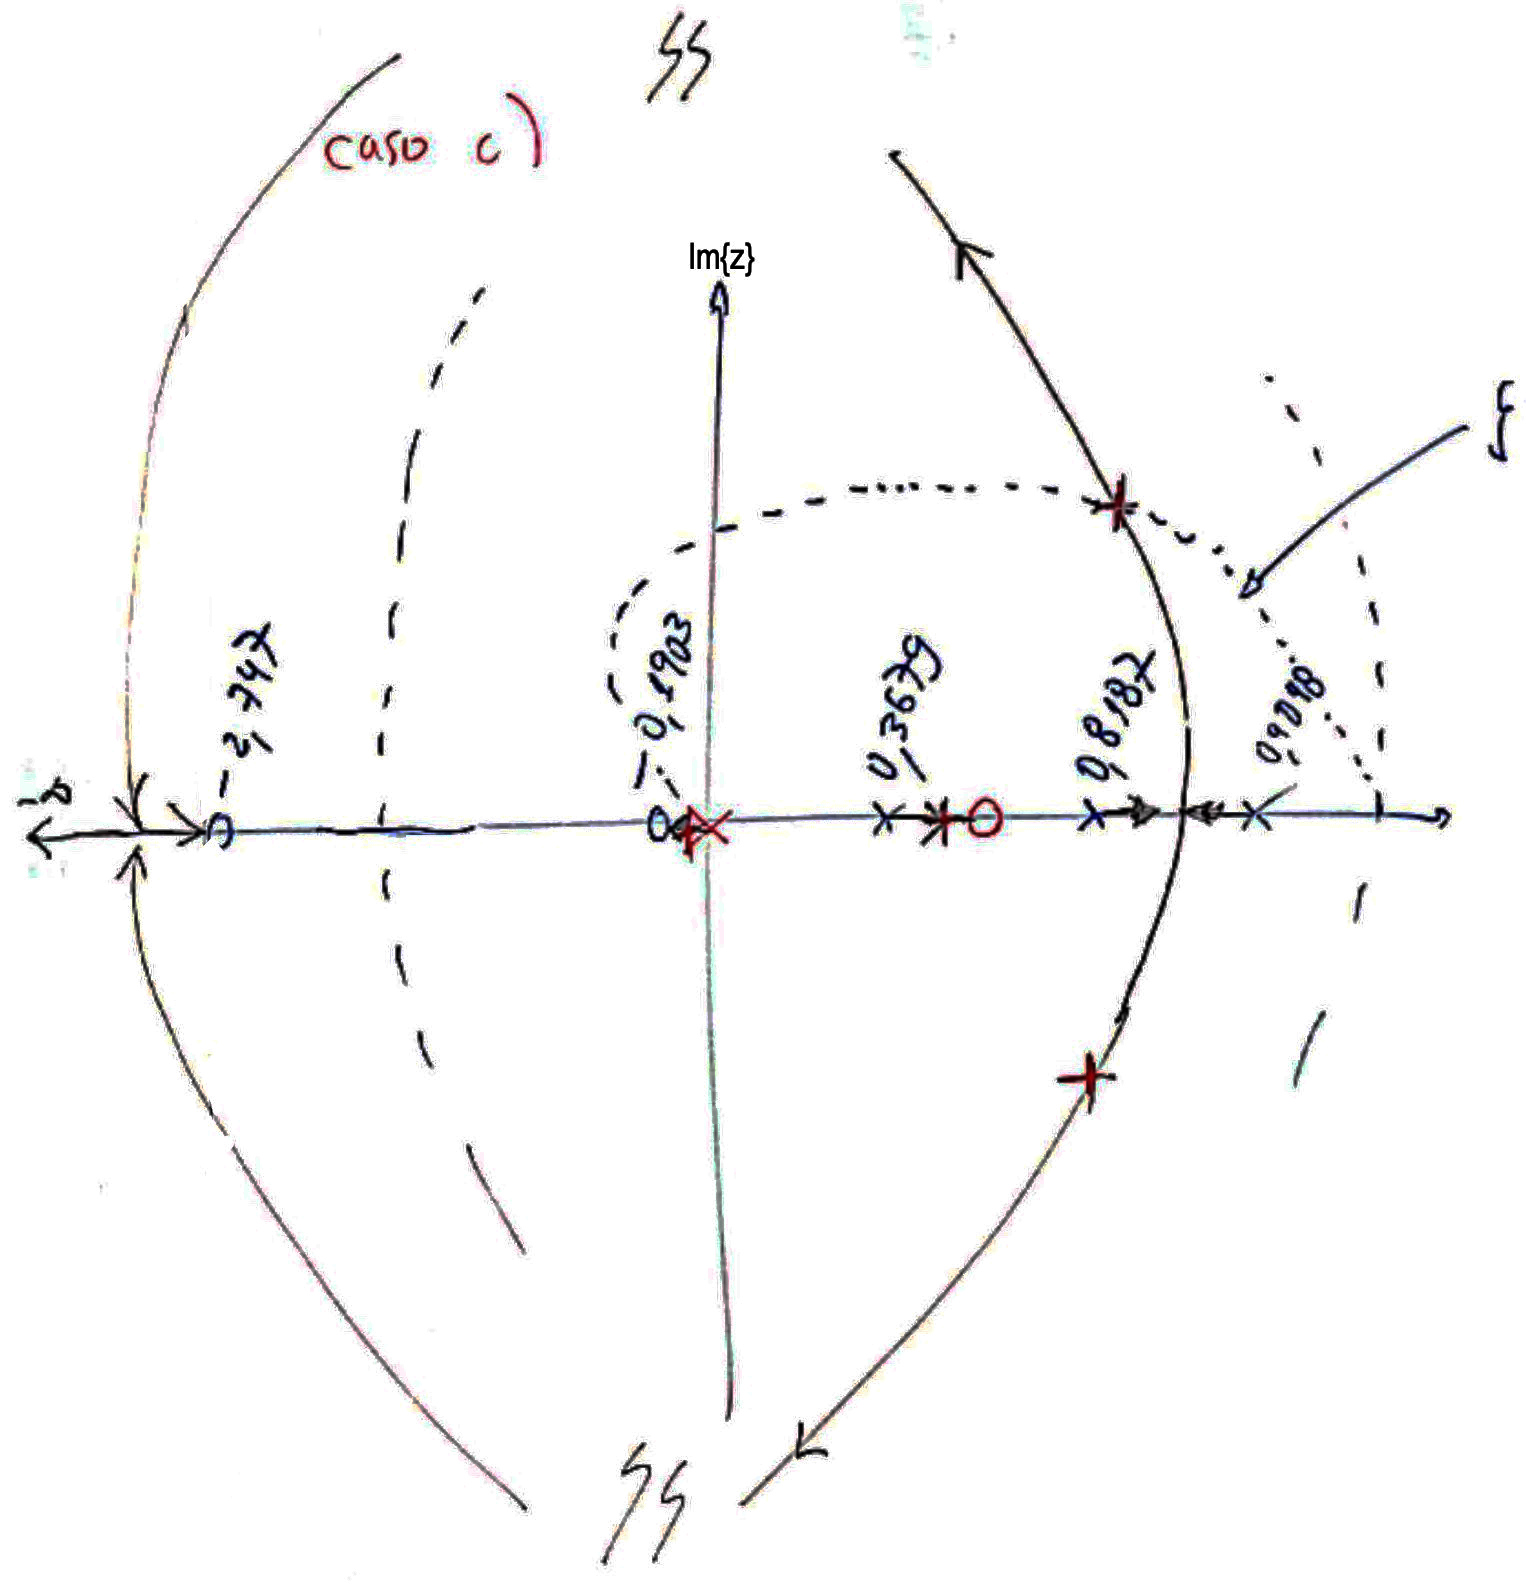 caso c)
Im{z}
-2,747
-0,1903
0,3679
0,8187
0,9048
-∞